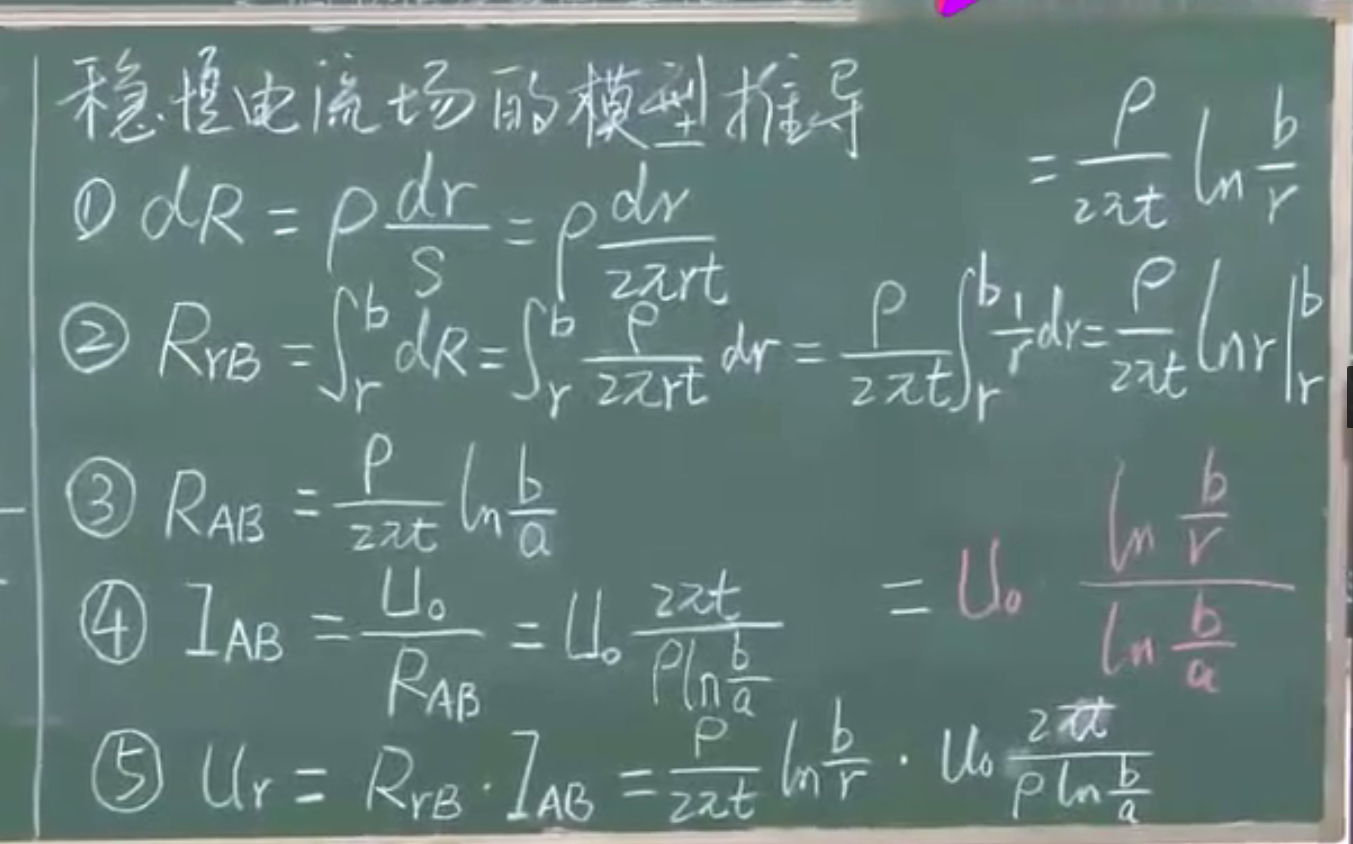 稳恒电流场的模型推导
① dR = ρ dr/S = ρ dr/(2πrt)
② R_rB = ∫_r^b dR = ∫_r^b ρ/(2πrt) dr = ρ/(2πt) ∫_r^b 1/r dr = ρ/(2πt) ln r |_r^b
= ρ/(2πt) ln b/r
③ R_AB = ρ/(2πt) ln b/a
④ I_AB = U₀/R_AB = U₀ 2πt/(ρ ln b/a)
⑤ U_r = R_rB · I_AB = ρ/(2πt) ln b/r · U₀ 2πt/(ρ ln b/a)
= U₀ (ln b/r)/(ln b/a)